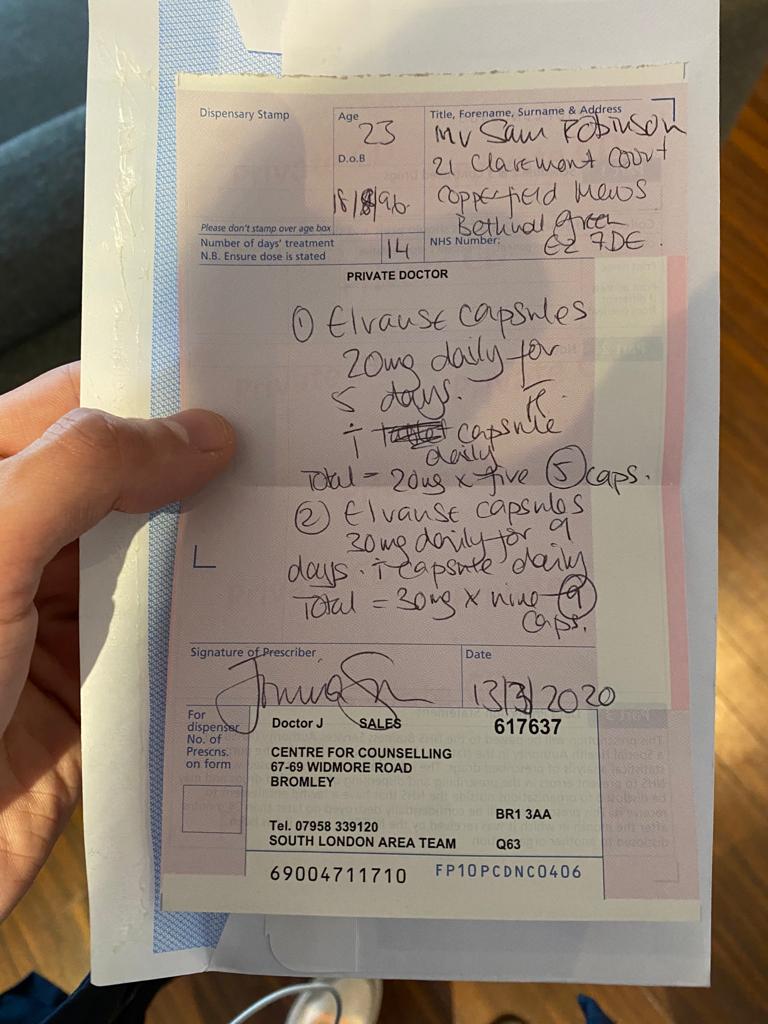 Dispensary Stamp
Age
23
D.o.B
18/8/96
Title, Forename, Surname & Address
Mr Sam Robinson
21 Claremont Court
Copperfield Mews
Bethnal Green
E2 7DE
Please don't stamp over age box
Number of days' treatment
N.B. Ensure dose is stated
14
NHS Number:
PRIVATE DOCTOR
① Elvanse capsules
20mg daily for
5 days.
i capsule
daily
Total = 20mg x five ⑤ caps.
② Elvanse capsules
30mg daily for 9
days. i capsule daily
Total = 30mg x nine ⑨
caps.
Signature of Prescriber
Date
13/3/2020
For
dispenser
No. of
Prescns.
on form
Doctor J SALES 617637
CENTRE FOR COUNSELLING
67-69 WIDMORE ROAD
BROMLEY
BR1 3AA
Tel. 07958 339120
SOUTH LONDON AREA TEAM Q63
69004711710 FP10PCDNC0406